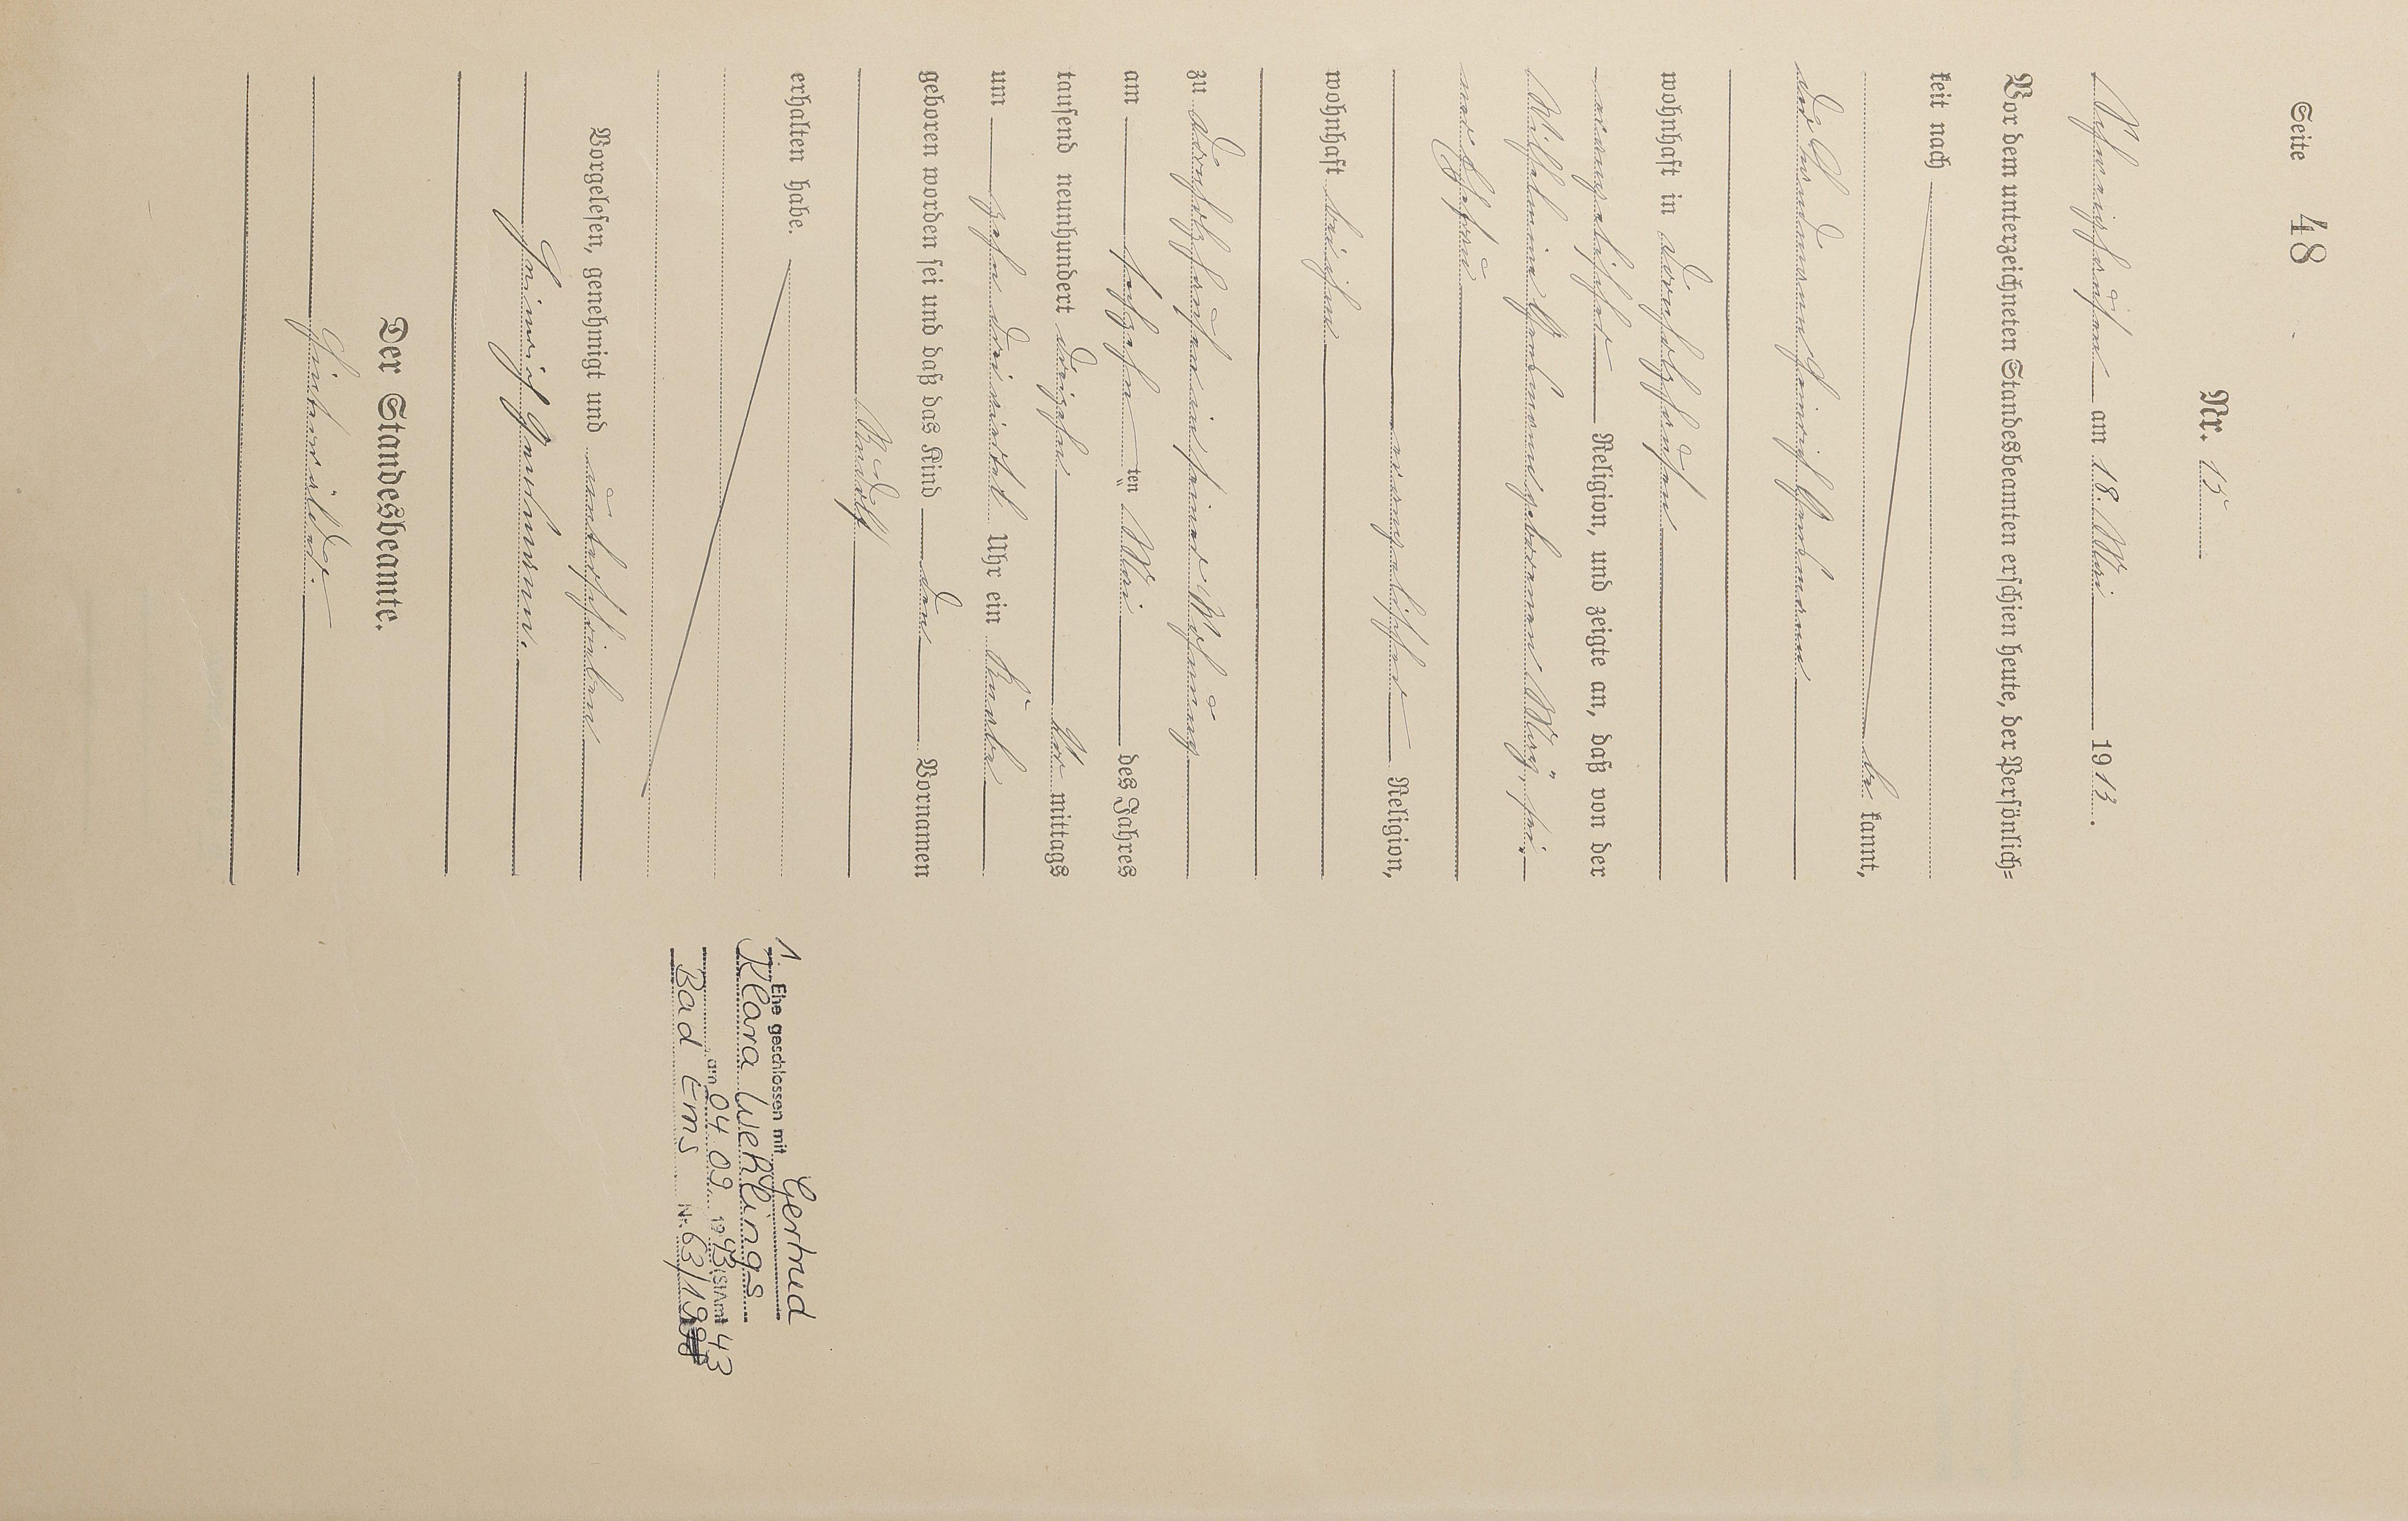 Seite 48
Nr. 15
am 18. Mai 1913.
Vor dem unterzeichneten Standesbeamten erschien heute, der Persönlich=
keit nach
be kannt,
der Heinrich
wohnhaft in Dornholzhausen
evangelischer Religion, und zeigte an, daß von der
Wilhelmine geborenen
ner Ehefrau
evangelischer Religion,
wohnhaft bei ihm
zu Dornholzhausen in seiner Wohnung
am sechzehn ten Mai des Jahres
tausend neunhundert dreizehn Vor mittags
um zehn dreiviertel Uhr ein Knabe
geboren worden sei und daß das Kind den Vornamen
Rudolf
erhalten habe.
Vorgelesen, genehmigt und unterschrieben
Heinrich
Der Standesbeamte.
1. Ehe geschlossen mit Gertrud
Klara Weklings
am 04 09. 1943 (StAmt
Bad Ems Nr. 63/19 43